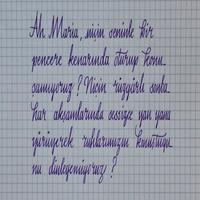 Ah Maria, niçin seninle bir
pencere kenarında oturup konu
şamıyoruz? Niçin rüzgârlı sonba
har akşamlarında sessizce yan yana
yürüyerek ruhlarımızın konuştuğu
nu dinleyemiyoruz?